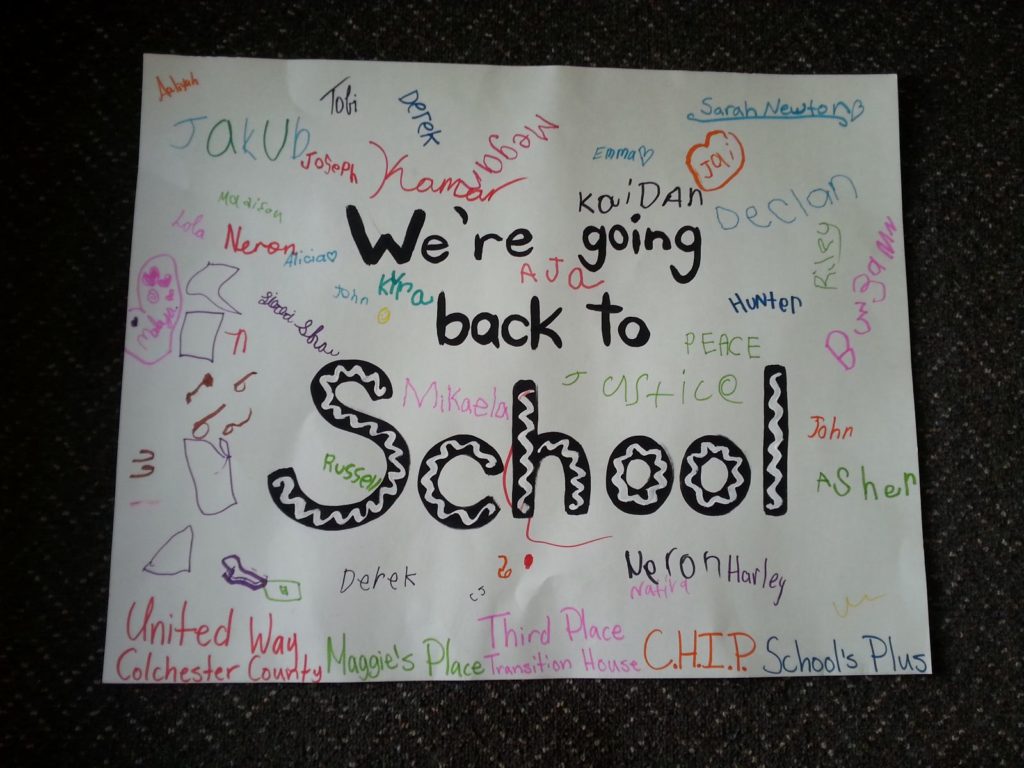 Aaliyah
Tobi
Derek
Sarah Newton
JAKUB
Joseph
Kamar
Megan
Emma
Jai
KaiDAn
Declan
Madison
Lola
Neron
Alicia
We're going
AJA
Riley
John
Kyra
Hunter
back to
PEACE
Justice
Mikaela
School
Russell
John
Asher
Derek
CJ
Neron
Harley
United Way
Colchester County
Maggie's Place
Third Place
Transition House
C.H.I.P.
School's Plus